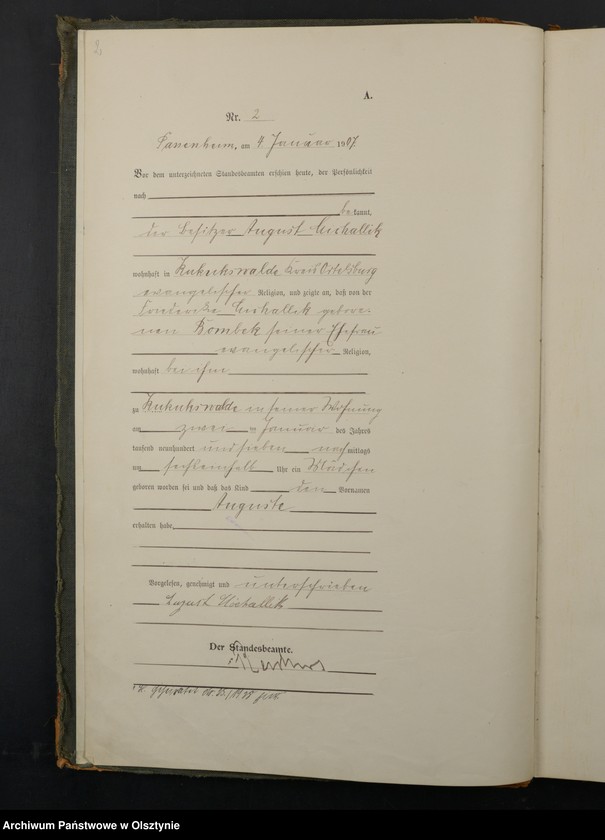 A.
Nr. 2
am 4. Januar 1907
Vor dem unterzeichneten Standesbeamten erschien heute, der Persönlichkeit
nach
be kannt,
der Besitzer August
wohnhaft in Kukukswalde Kreis Ortelsburg
evangelischer Religion, und zeigte an, daß von der
Friederike gebore-
nen Bombek seiner Ehefrau
evangelischer Religion,
wohnhaft bei ihm
zu Kukukswalde in seiner Wohnung
am zwei ten Januar des Jahres
tausend neunhundert und sieben nach mittags
um Uhr ein Mädchen
geboren worden sei und daß das Kind den Vornamen
Auguste
erhalten habe.
Vorgelesen, genehmigt und unterschrieben
August
Der Standesbeamte.
Archiwum Państwowe w Olsztynie